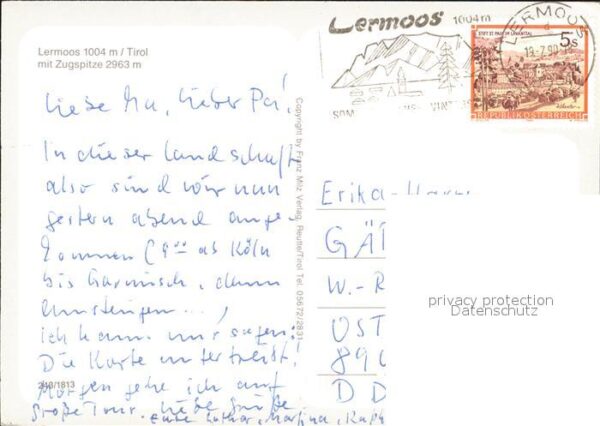 Lermoos 1004 m / Tirol
mit Zugspitze 2963 m
Liebe Mu, lieber Pa!
In dieser Landschaft
also sind wir nun
gestern abend ange-
kommen (9⁰⁰ ab Köln
bis Garmisch, dann
umsteigen...)
ich kann nur sagen:
Die Karte untertreibt!
Morgen gehe ich auf
große Tour. Liebe Grüße
Eure Lothar, Martina,
240/1813
Copyright by Franz Milz Verlag, Reutte/Tirol Tel. 05672/2831
Lermoos 1004 m
SOM
LERMOOS
STIFT ST. PAUL IM LAVANTTAL
5s
REPUBLIK ÖSTERREICH
Erika-
GÄ
W.-R
OST
DD
privacy protection
Datenschutz